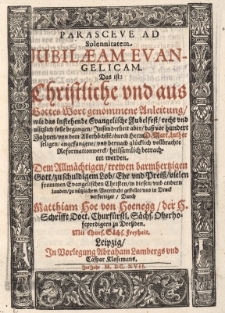 PARASCEVE AD
Solennitatem
JUBILÆAM EVAN-
GELICAM.
Das ist:
Christliche vnd aus
Gottes Wort genommene Anleitung/
wie das instehende Evangelische Jubelfest/ recht vnd
nützlich solle begangen/
Jahren
seligen/ angefangene/ vnd hernach glücklich vollbrachte
Reformationwerck/ betrach-
tet werden.
Dem Allmächtigen/ trewen barmhertzigen
Gott/ zu schuldigem Lob/ Ehr vnd Preiß/ vielen
frommen Evangelischen Christen/ in diesen/ vnd andern
landen/ zu nützlichem Unterricht gestellet vnd in Druck
verfertiget/ Durch
Matthiam Hoe von Hoenegg/ der H.
Schrifft Doct. Churfürstl. Sächs. Oberho-
fepredigern zu Dreßden.
Mit Churf. Sächs. Freyheit.
Leipzig/
In Vorlegung Abraham Lambergs vnd
Caspar Klosemans.
Im Jahr M. DC. XVII.